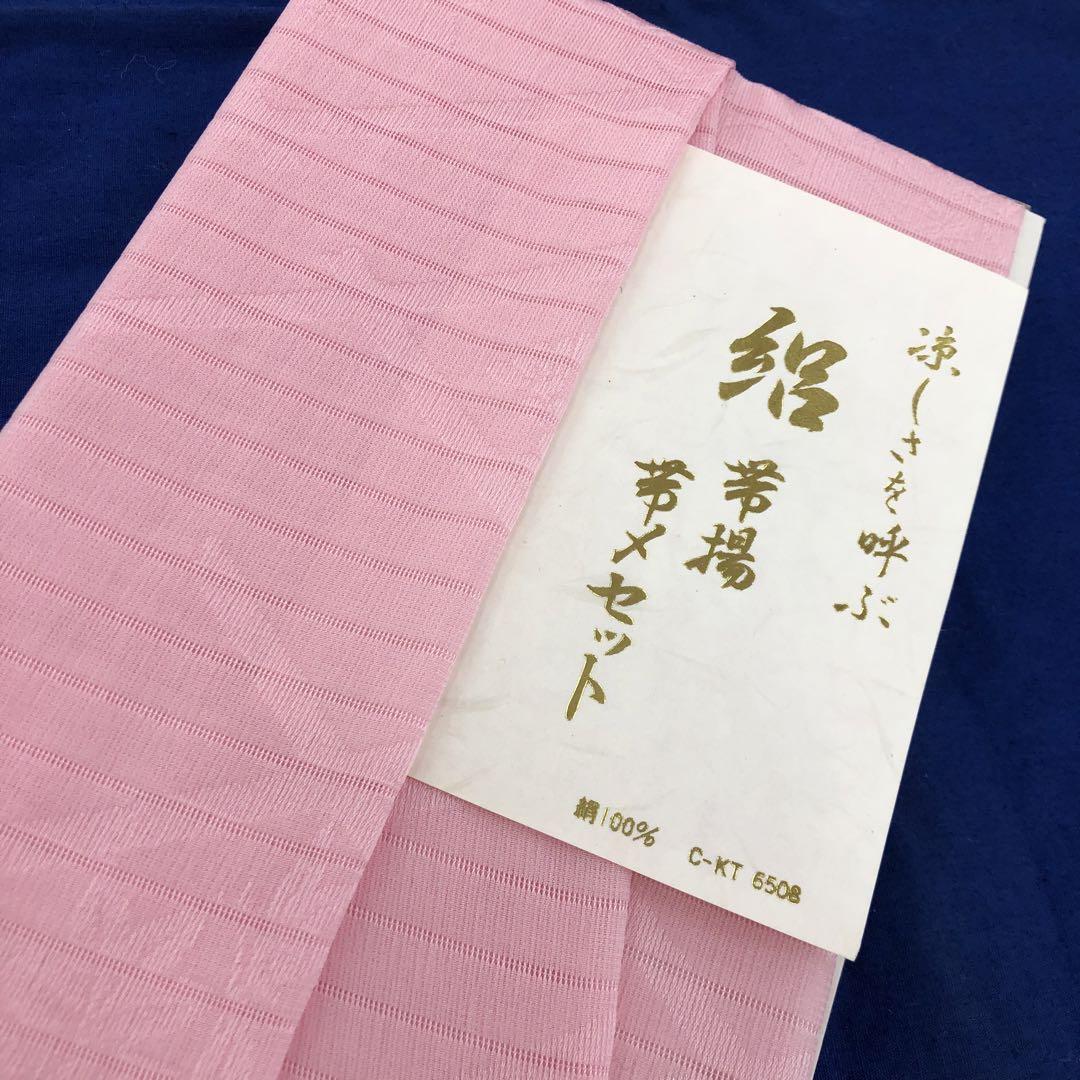 涼しさを呼ぶ
絽
帯揚
帯〆セット
絹100% C-KT 6508